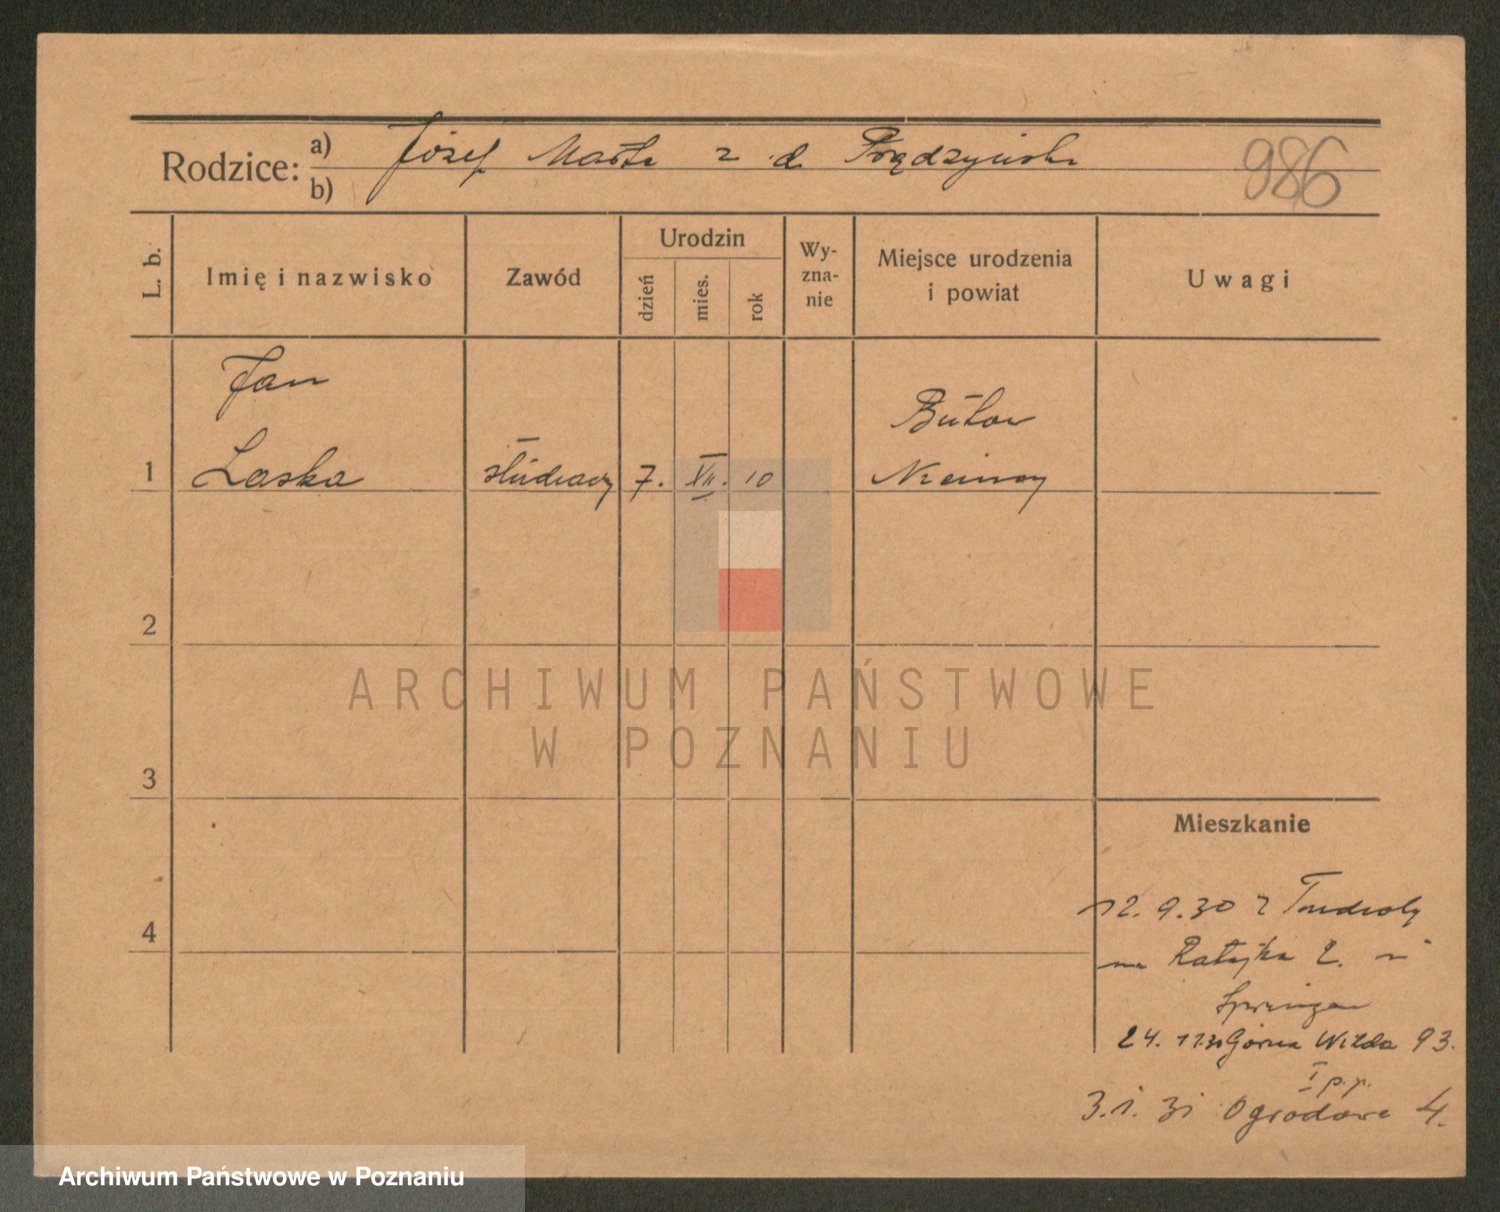 Rodzice: a) Józef Marta z d. Prądzyńska
b)
986
L. b.
Imię i nazwisko
Zawód
Urodzin
dzień
mies.
rok
Wy-
zna-
nie
Miejsce urodzenia
i powiat
Uwagi
Jan
Bütow
1 Laska 7. XII. 10 Niemcy
2
ARCHIWUM PAŃSTWOWE
W POZNANIU
3
Mieszkanie
12.9.30 z
4
na Ratajska 2.
24. 11.30 Górna Wilda 93.
I p.p.
3.1.31 Ogrodowa 4.
Archiwum Państwowe w Poznaniu